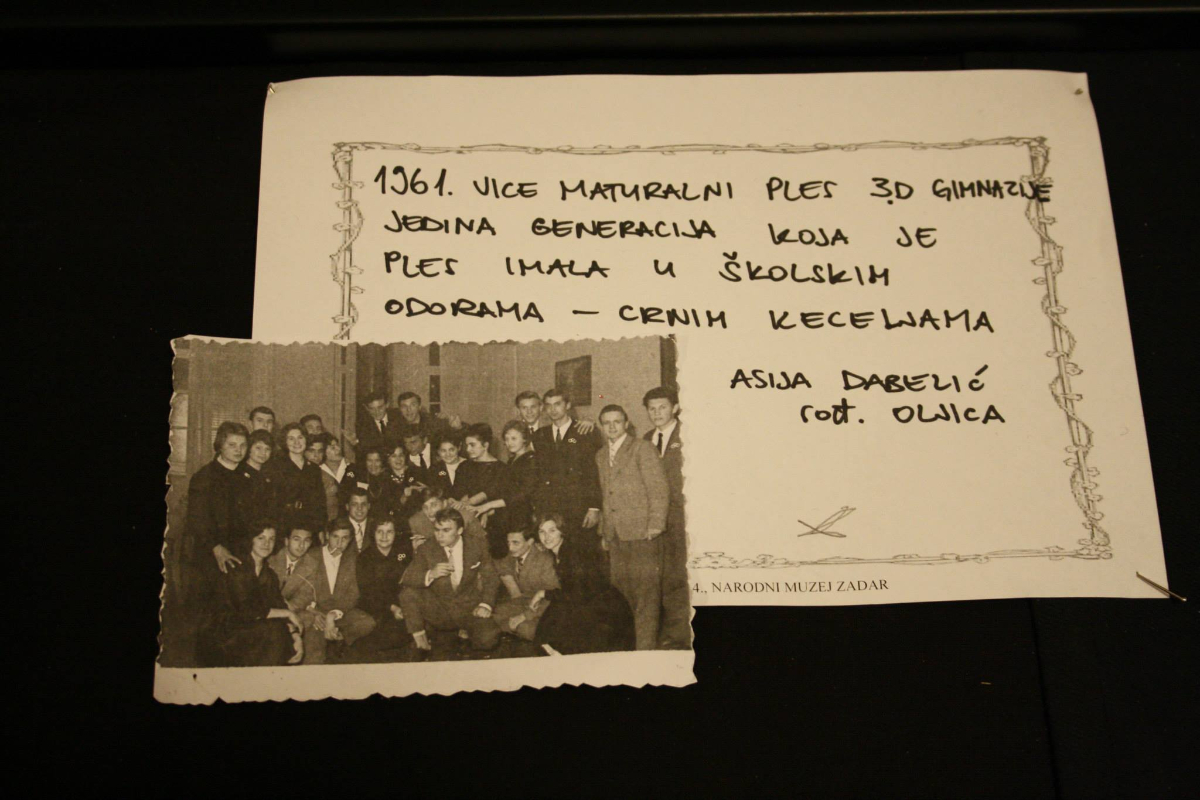 1961. VICE MATURALNI PLES 3.D GIMNAZIJE
JEDINA GENERACIJA KOJA JE
PLES IMALA U ŠKOLSKIM
ODORAMA – CRNIM KECELJAMA
ASIJA DABELIĆ
rođ. OLJICA
4., NARODNI MUZEJ ZADAR